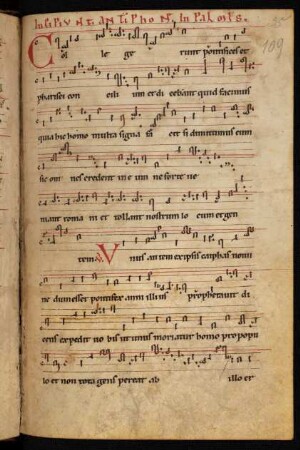 Incipivnt antipho n. in palmis.
109
Col le ge runt pontifices et
pharisei con cili um et di cebant quid facimus
quia hic homo multa signa fa cit si dimittimus eum
sic om nes credent in e um ne forte ve
niant roma ni et tollant nostrum lo cum et gen
tem. V nus autem ex ipsis caiphas nomi
ne dum esset pontifex anni illius prophetavit di
cens expedit vo bis ut unus moriatur homo pro popu
lo et non tota gens pereat ab illo er